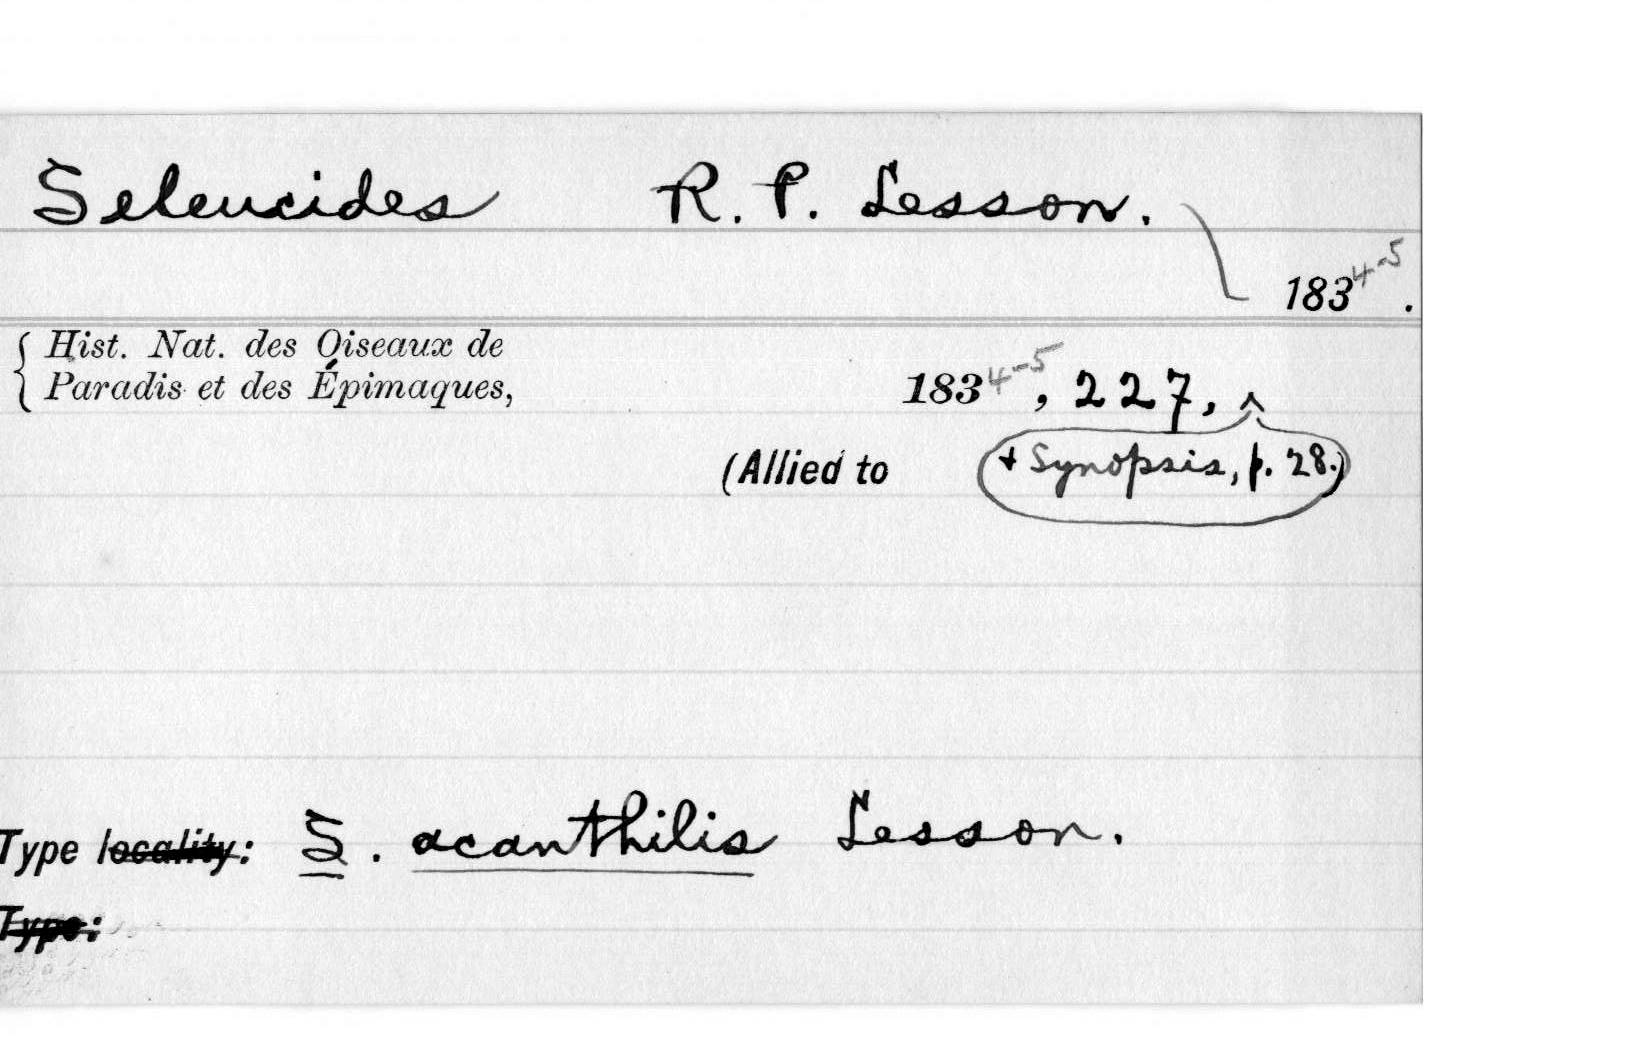 Seleucides R. P. Lesson.
1834-5.
Hist. Nat. des Oiseaux de
Paradis et des Épimaques, 1834-5, 227, ^
(Allied to + Synopsis, p. 28.)
Type locality: S. acanthilis Lesson.
Type: